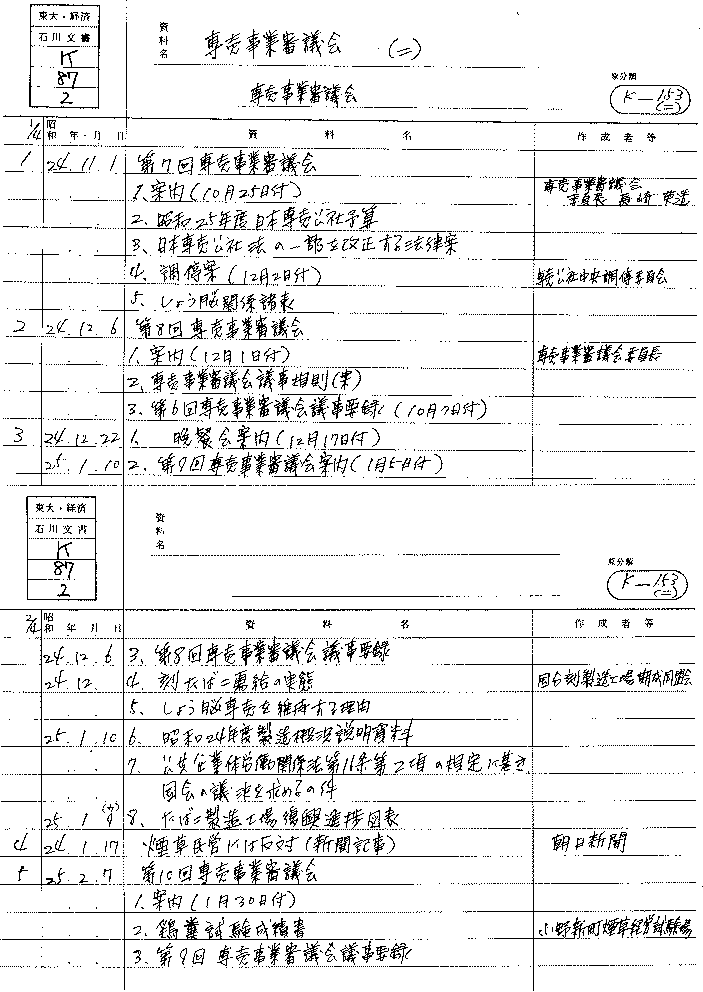 東大・経済
石川文書
K
87
2
資料名 専売事業審議会 (二)
専売事業審議会
原分類
K-153
(二)
1/4 昭和 年・月 日 資料名 作成者等
1 24.11.1 第7回専売事業審議会
1、案内(10月25日付) 専売事業審議会
委員長
2、昭和25年度日本専売公社予算
3、日本専売公社法の一部を改正する法律案
4、調停案(12月2日付) 専売公社中央調停委員会
5、しょう脳関係諸表
2 24.12.6 第8回専売事業審議会
1、案内(12月1日付) 専売事業審議会委員長
2、専売事業審議会議事規則(案)
3、第6回専売事業審議会議事要録(10月7日付)
3 24.12.22 1、晩餐会案内(12月17日付)
25.1.10 2、第9回専売事業審議会案内(1月5日付)
東大・経済
石川文書
K
87
2
資料名
原分類
K-153
(二)
2/4 昭和 年 月 日 資料名 作成者等
24.12.6 3、第8回専売事業審議会議事要録
24.12. 4、刻たばこ需給の実態
5、しょう脳専売を維持する理由
25.1.10 6、昭和24年度製造概況説明資料
7、公共企業体労働関係法第16条第2項の規定に基き
国会の議決を求めるの件
25.1 8、たばこ製造工場復興進捗図表
4 24.1.17 煙草民営には反対(新聞記事) 朝日新聞
5 25.2.7 第10回専売事業審議会
1、案内(1月30日付)
2、試験成績書
3、第9回専売事業審議会議事要録